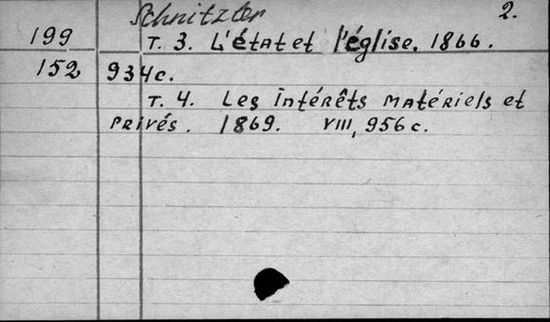 Schnitzler 2.
199 T. 3. L'état et l'église. 1866.
152 934c.
T. 4. Les intérêts matériels et
privés. 1869. VIII, 956 c.